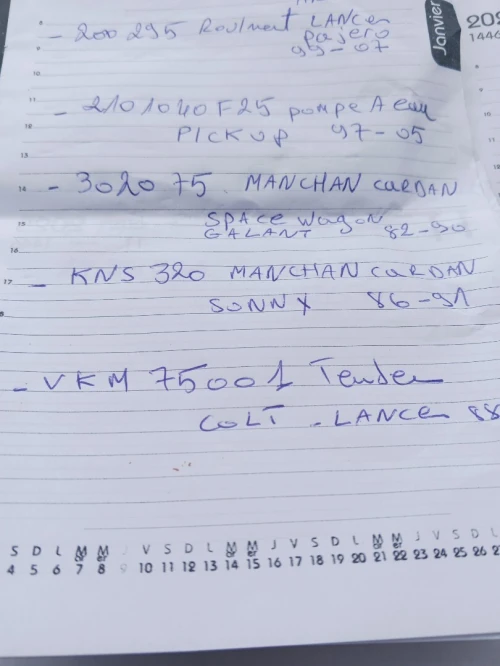 - 200295 Roulment LANCER
pajero
99-07
- 2101040F25 pompe A eau
PICKUP 97-05
- 302075 MANCHAN CARDAN
SPACE Wagon
GALANT 82-90
- KNS 320 MANCHAN CARDAN
SONNY 86-91
- VKM 75001 Tender
COLT - LANCER 88
Janvier
202
1446
8
9
10
11
12
13
14
15
16
17
S D L M M J V S D L M M J V S D L M M J V S D L
4 5 6 7 8 9 10 11 12 13 14 15 16 17 18 19 20 21 22 23 24 25 26 27